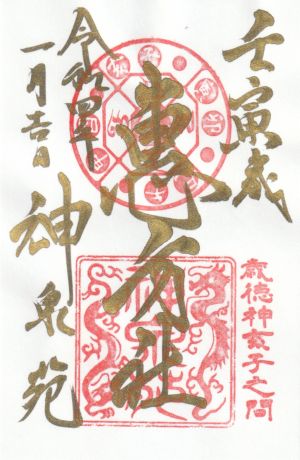 壬寅歳
歳徳神亥子之間
恵方社
令和四年
一月吉日
神泉苑